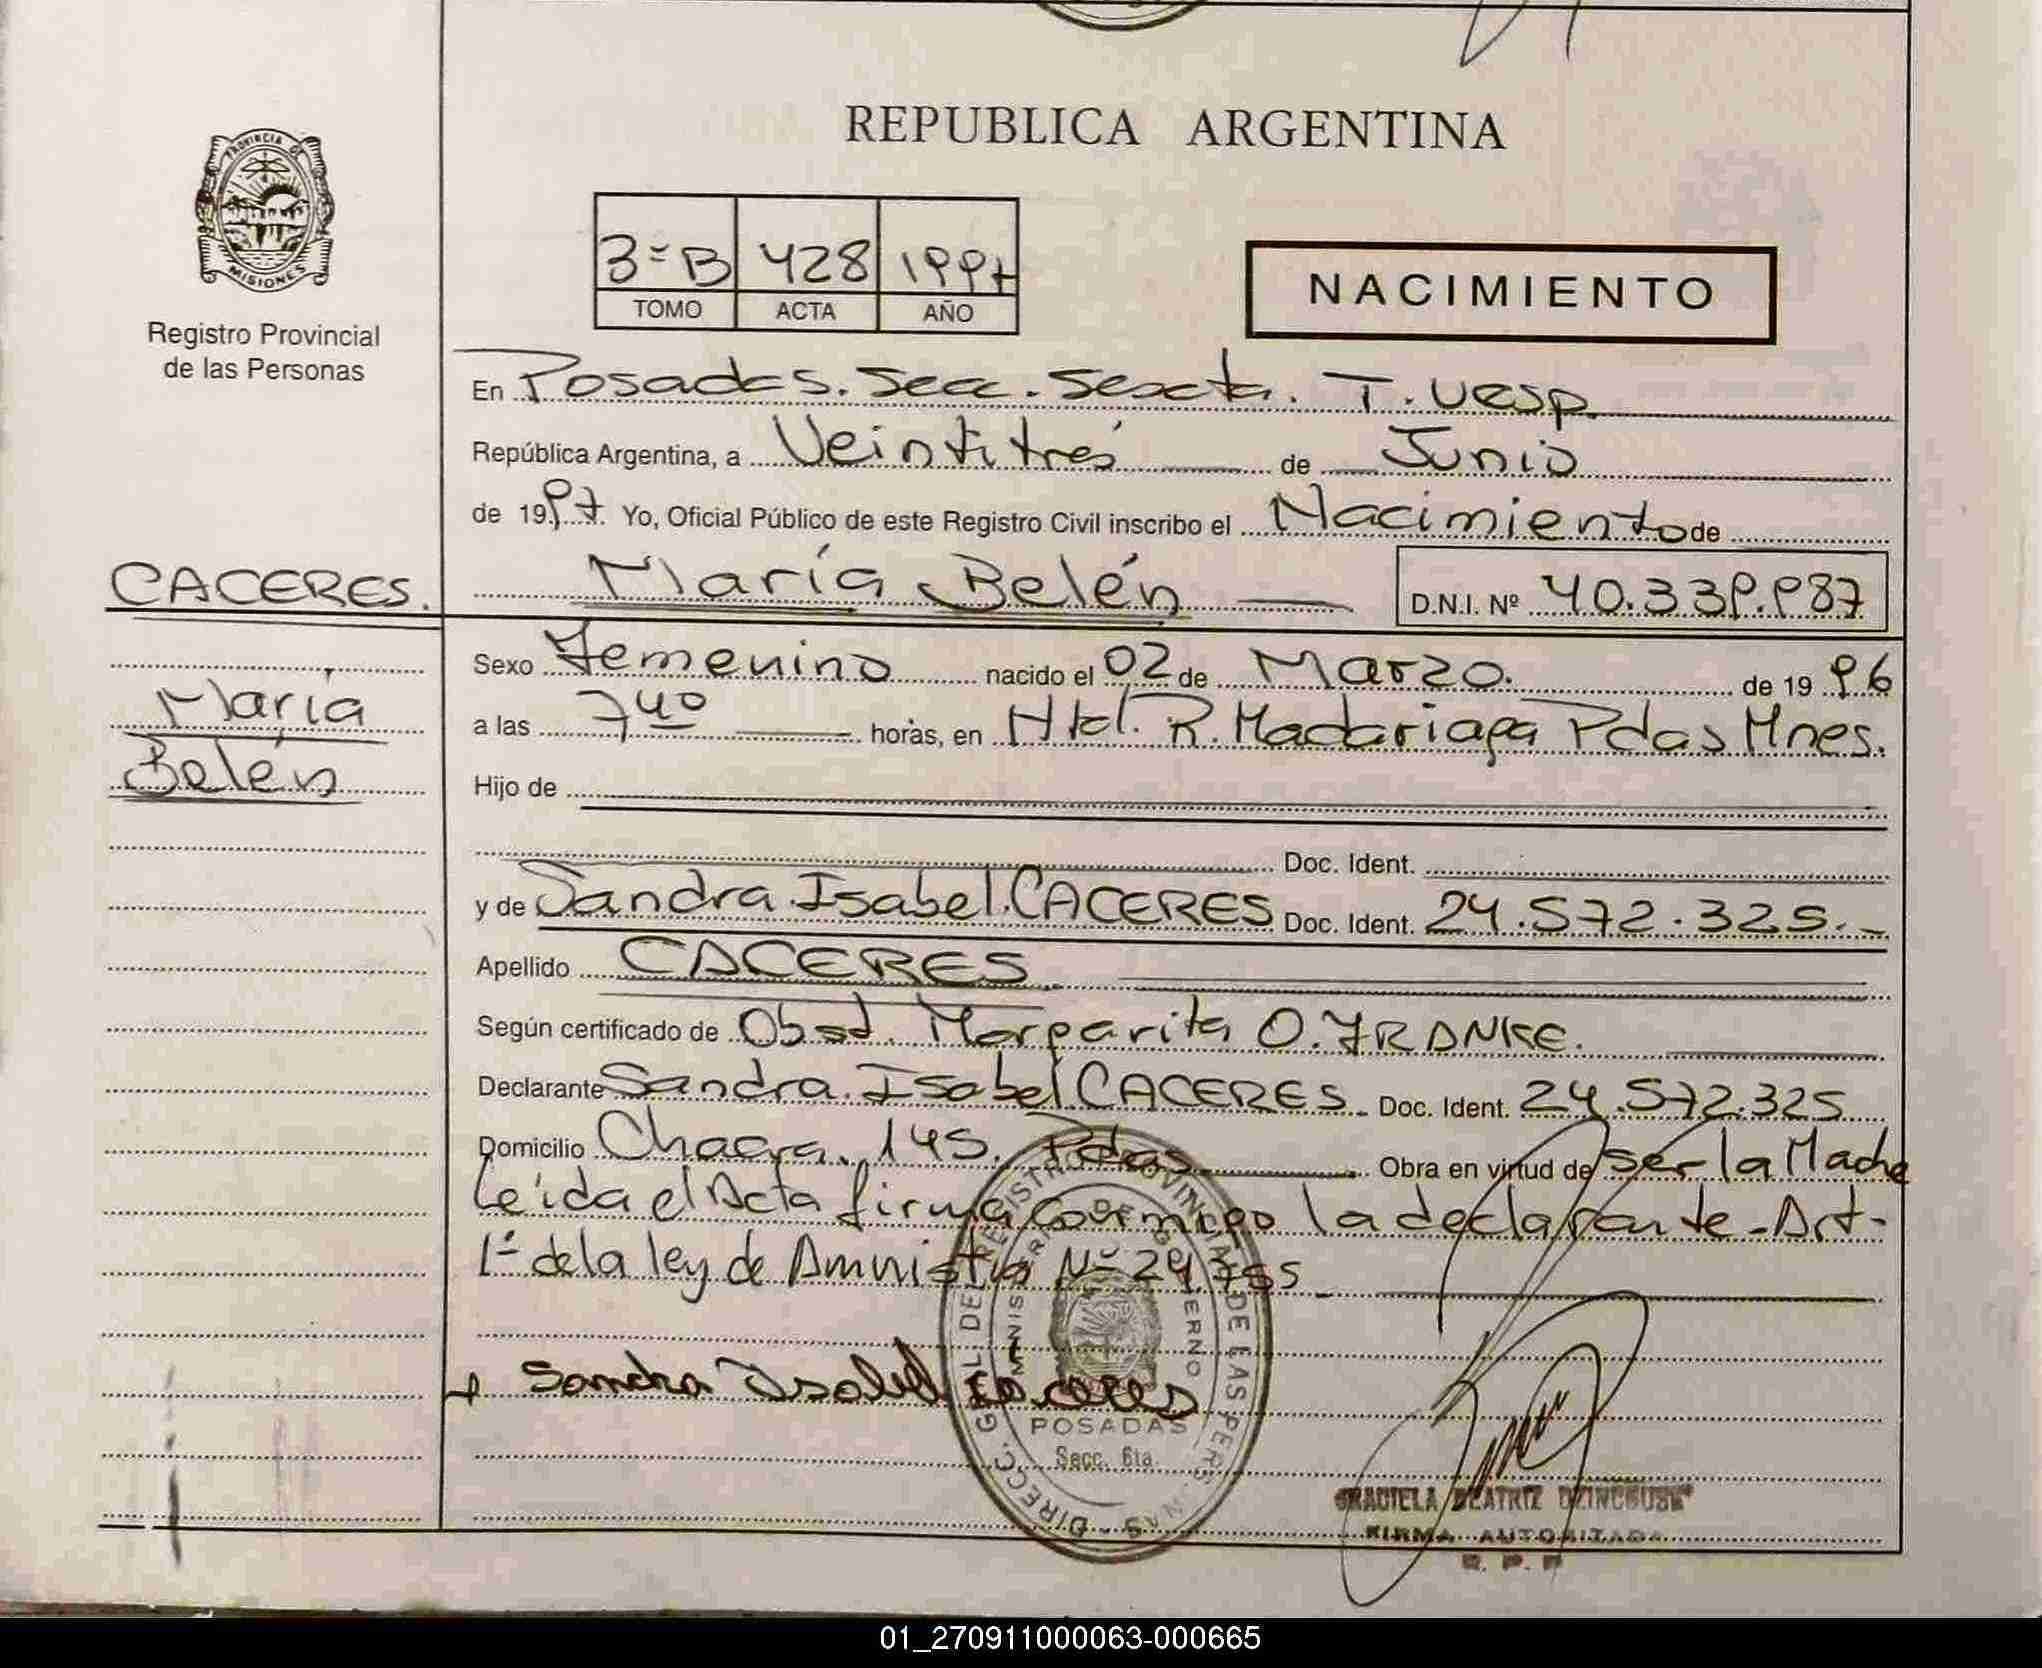 REPUBLICA ARGENTINA
PROVINCIA DE
MISIONES
Registro Provincial
de las Personas
3ª B 428 1997
TOMO ACTA AÑO
NACIMIENTO
En Posadas. Secc. Sexta. T. Vesp.
República Argentina, a Veintitrés de Junio
de 1997. Yo, Oficial Público de este Registro Civil inscribo el Nacimiento de
CACERES. María Belén D.N.I. Nº 40.339.987
María
Belén
Sexo Femenino nacido el 02 de Marzo. de 1996
a las 7 40 horas, en Htal. R. Madariaga Pdas Mnes.
Hijo de
Doc. Ident.
y de Sandra Isabel CACERES Doc. Ident. 24.572.325.-
Apellido CACERES
Según certificado de Obst. Margarita O. FRANKE.
Declarante Sandra Isabel CACERES Doc. Ident. 24.572.325
Domicilio Chacra 145. Pdas Obra en virtud de ser la Madre
Leída el Acta firma conmigo la declarante - Art-
1º de la ley de Amnistía Nº 24.755
Sandra Isabel Caceres
DIRECC. GRAL DEL REGISTRO PROVINCIAL DE LAS PERSONAS
MINISTERIO DE GOBIERNO
POSADAS
Secc. 6ta
GRACIELA BEATRIZ
FIRMA AUTORIZADA
R. P. P
01_270911000063-000665